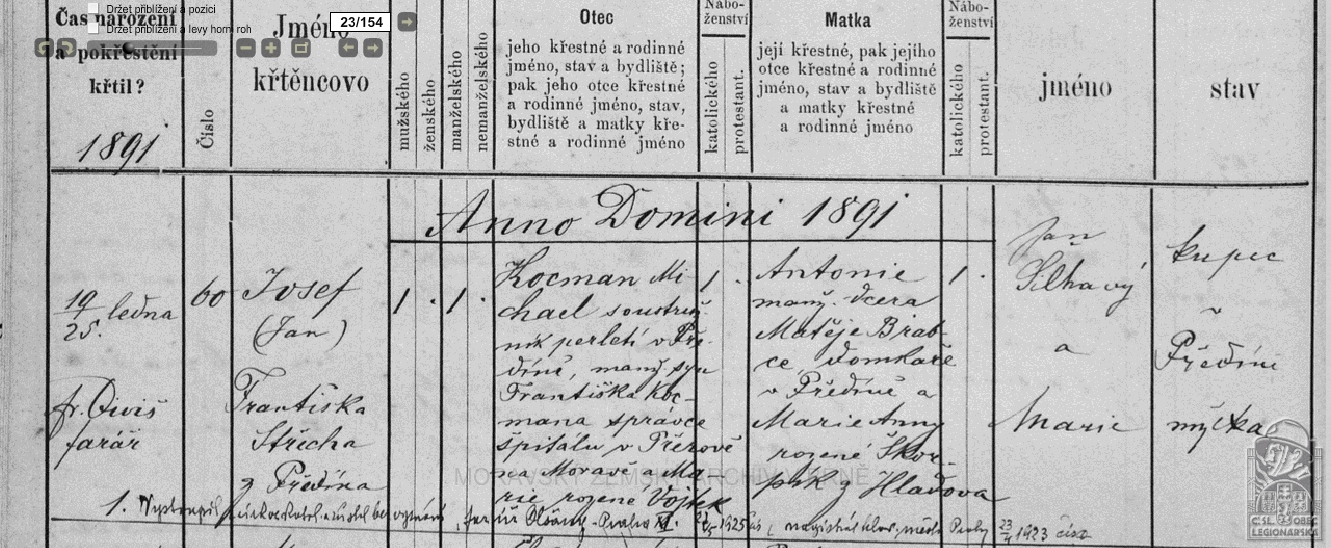 Držet přiblížení a pozici
Držet přiblížení a levy horni roh
23/154
Čas narození
a pokřestění
křtil?
1891
Číslo
Jméno
křtěncovo
mužského
ženského
manželského
nemanželského
Otec
jeho křestné a rodinné
jméno, stav a bydliště;
pak jeho otce křestné
a rodinné jméno, stav,
bydliště a matky kře-
stné a rodinné jméno
Nábo-
ženství
katolického
protestant.
Matka
její křestné, pak jejího
otce křestné a rodinné
jméno, stav a bydliště
a matky křestné
a rodinné jméno
Nábo-
ženství
katolického
protestant.
jméno
stav
Anno Domini 1891
19/25. ledna
fr. Diviš
farář
60
Josef
(Jan)
Františka
Střecha
z Předína
1 . 1 .
Kocman Mi-
chael soustruž
ník perletí v Pře-
díně, manž. syn
Františka Koc-
mana správce
špitálu v Přerově
na Moravě a Ma-
rie rozené Vojtek
1 .
Antonie
manž. dcera
Matěje Brab-
ce, domkaře
v Předíně a
Marie Anny
rozené Škor-
pík z Hladova
1 .
Jan
Šilhavý
a
Marie
kupec
v
Předíně
mýtka
MORAVSKÝ ZEMSKÝ ARCHIV V BRNĚ
1. Vystoupil z církve
Olšany-Praha XI.
1925
magistrát hlav. města Prahy 23/4 1923
ČS. OBEC
LEGIONÁŘSKÁ